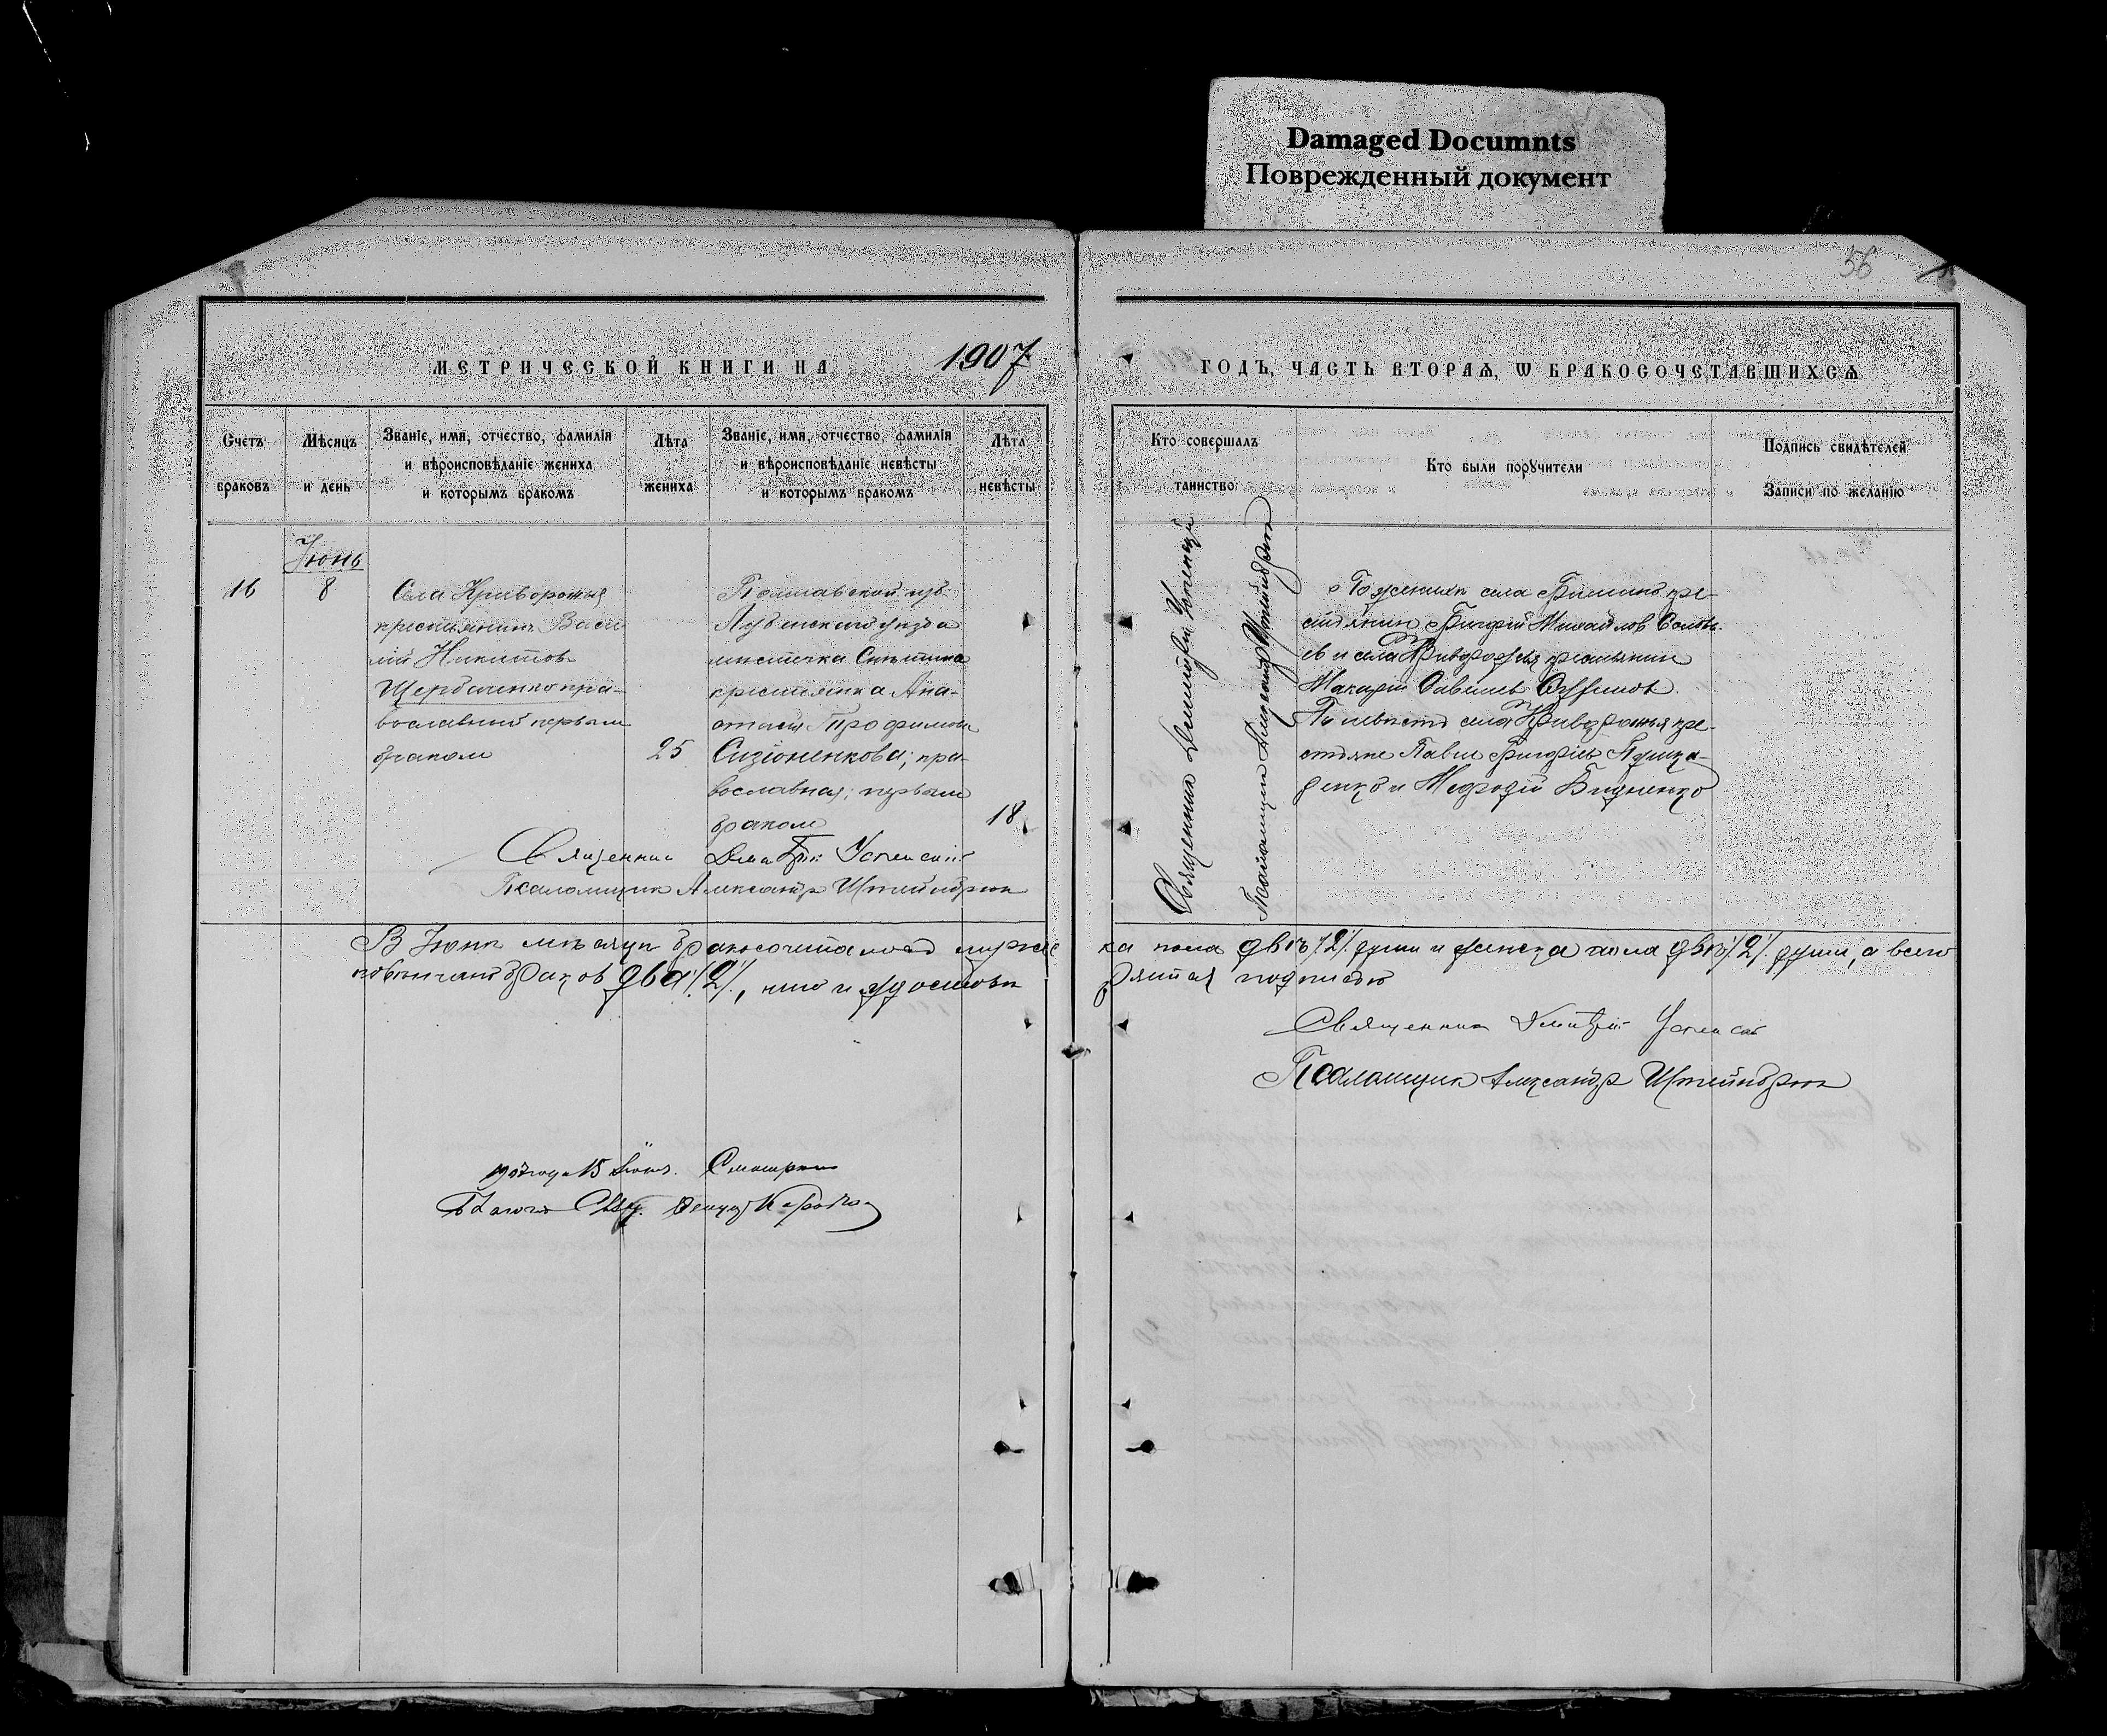 Damaged Documnts
Поврежденный документ
56
МЕТРИЧЕСКОЙ КНИГИ НА 1907
ГОДЪ, ЧАСТЬ ВТОРАѦ, Ѡ БРАКОСОЧЕТАВШИХСѦ
Счетъ браковъ
Мѣсяцъ и день
Званіе, имя, отчество, фамилія
и вѣроисповѣданіе жениха
и которымъ бракомъ
Лѣта жениха
Званіе, имя, отчество, фамилія
и вѣроисповѣданіе невѣсты
и которымъ бракомъ
Лѣта невѣсты
Кто совершалъ
таинство
Кто были порꙋчители
Подпись свидѣтелей
Записи по желанію
Іюнь
16
8
Села Криворожья
крестьянинъ Васи
лій Никитовъ
Щербаченко пра-
вославный первым
браком
25
Полтавской губ.
Лубенскаго уѣзда
мѣстечка Снѣтина
крестьянка Ана-
стасія Трофимова
Сизіоненкова; пра-
вославная; первым
браком
18
Священник Димитрій Успенскій
Псаломщик Александр Штейнбрюк
Священник Димитрій Успенскій
Псаломщик Александр Штейнбрюк
По женихѣ села Гришино кре-
стьянин Григорій Михайлов Соловь-
ев и села Криворожья крестьянин
Макарій Савельев
По невѣстѣ села Криворожья кре-
стьяне Павел Григорьев
и Мефодій Бидненко
В Іюнѣ мѣсяцѣ бракосочеталось мужес
ка пола двѣ /2/ души и женска пола двѣ /2/ души, а всего
повѣнчано браков два /2/, что и удостовѣ
ряется подписью
Священник Димитрій Успенскій
Псаломщик Александр Штейнбрюк
1907 года 15 Смотрѣл
Благоч. Свящ.